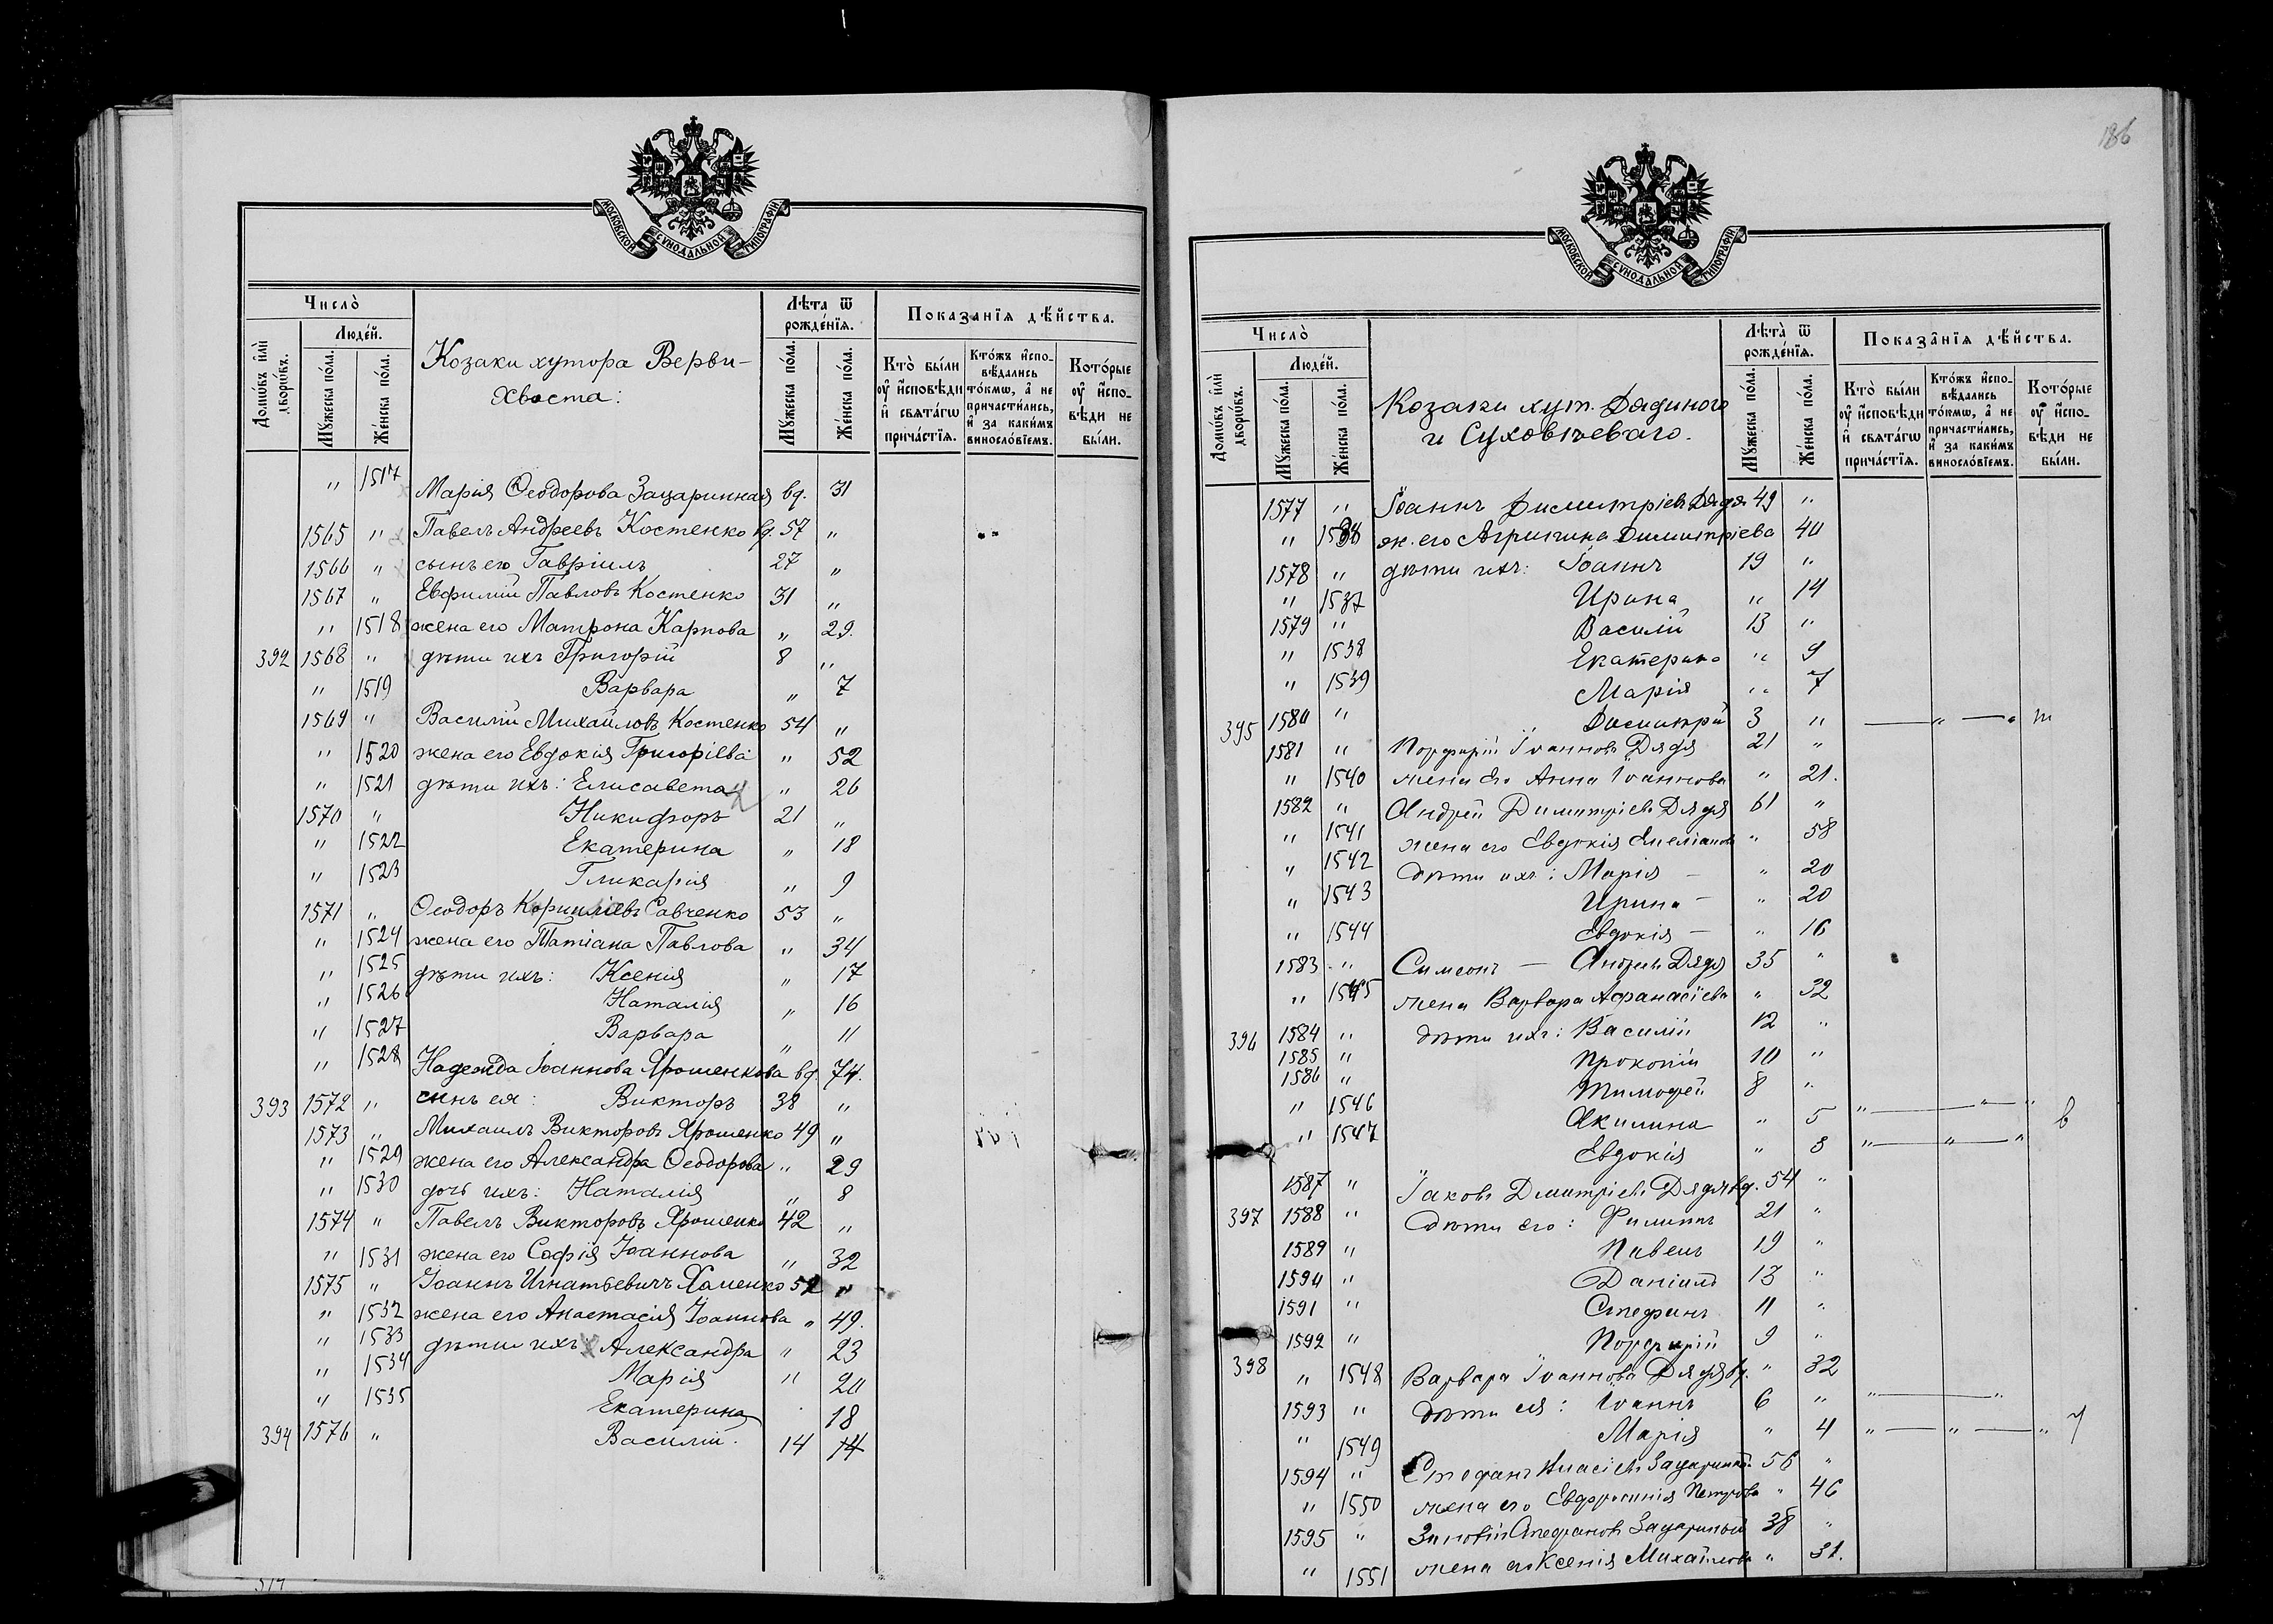 МОСКОВСКОЙ СУНОДАЛЬНОЙ ТИПОГРАФІИ
Число̀
Домѡ́въ и҆лѝ дворѡ́въ.
Люде́й.
Мꙋ́жеска по́ла.
Же́нска по́ла.
Козаки хутора Верви-
хвоста:
Лѣ́та ѿ рожде́нїѧ.
Мꙋ́жеска по́ла.
Же́нска по́ла.
Показа́нїѧ дѣ́йства.
Кто̀ бы́ли ѹ҆ и҆́сповѣди и҆ свѧта́гѡ прича́стїѧ.
Кто́жъ и҆спо-вѣ́дались то́кмѡ, а҆ не причасти́лись, и҆ за каки́мъ винословїемъ.
Кото́рые ѹ҆ и҆́спо-вѣди не бы́ли.
" 1517 Марія Ѳеодорова Зацаринная вд. 31
1565 " Павелъ Андреевъ Костенко вд. 57 "
1566 " сынъ его Гавріилъ 27 "
1567 " Евфимій Павловъ Костенко 31 "
" 1518 жена его Матрона Карпова " 29.
392 1568 " дѣти ихъ Григорій 8 "
" 1519 Варвара " 7
1569 " Василій Михайловъ Костенко 54 "
" 1520 жена его Евдокія Григоріева " 52
" 1521 дѣти ихъ: Елисавета " 26
1570 " Никифоръ 21 "
" 1522 Екатерина " 18
" 1523 Гликарія " 9
1571 " Ѳеодоръ Корниліевъ Савченко 53 "
" 1524 жена его Татіана Павлова " 34
" 1525 дѣти ихъ: Ксенія " 17
" 1526 Наталія " 16
" 1527 Варвара " 11
" 1528 Надежда Іоаннова Ярошенкова вд. 74.
393 1572 " сынъ ея: Викторъ 38 "
1573 " Михаилъ Викторовъ Ярошенко 49 "
" 1529 жена его Александра Ѳеодорова " 29
" 1530 дочь ихъ: Наталія " 8
1574 " Павелъ Викторовъ Ярошенко 42 "
" 1531 жена его Софія Іоаннова " 32
1575 " Іоаннъ Игнатьевичъ Хоменко 52 "
" 1532 жена его Анастасія Іоаннова " 49.
" 1533 дѣти ихъ Александра " 23
" 1534 Марія " 20
" 1535 Екатерина 18
394 1576 " Василій. 14 14
186
МОСКОВСКОЙ СУНОДАЛЬНОЙ ТИПОГРАФІИ
Число̀
Домѡ́въ и҆лѝ дворѡ́въ.
Люде́й.
Мꙋ́жеска по́ла.
Же́нска по́ла.
Козаки хут. Дядиного
и Суховѣеваго.
Лѣ́та ѿ рожде́нїѧ.
Мꙋ́жеска по́ла.
Же́нска по́ла.
Показа́нїѧ дѣ́йства.
Кто̀ бы́ли ѹ҆ и҆́сповѣди и҆ свѧта́гѡ прича́стїѧ.
Кто́жъ и҆спо-вѣ́дались то́кмѡ, а҆ не причасти́лись, и҆ за каки́мъ винословїемъ.
Кото́рые ѹ҆ и҆́спо-вѣди не бы́ли.
1577 " Іоаннъ Димитріевъ Дядя 49 "
" ж. его Агрипина Димитріева 40
1578 " дѣти ихъ: Іоаннъ 19 "
" 1537 Ирина " 14
1579 " Василій 13 "
" 1538 Екатерина " 9
" 1539 Марія " 7
395 1580 " Димитрій 3 " — " — " м
1581 " Порфирій Іоанновъ Дядя 21 "
" 1540 жена его Анна Іоаннова " 21.
1582 " Андрей Димитріевъ Дядя 61 "
" 1541 жена его Евдокія Емеліанова " 58
" 1542 дѣти ихъ: Марія — " 20
" 1543 Ирина — " 20
" 1544 Евдокія — " 16
1583 " Симеонъ — Андреевъ Дядя 35 "
" 1545 жена Варвара Афанасіева " 32
396 1584 " дѣти ихъ: Василій 12 "
1585 " Прокопій 10 "
1586 " Тимофей 8 "
" 1546 Акилина " 5 " — " — "
" 1547 Евдокія " 3 " — " — " в
1587 " Іаковъ Дмитріевъ Дядя вд. 54 "
397 1588 " дѣти его: Филиппъ 21 "
1589 " Павелъ 19 "
1590 " Даніилъ 13 "
1591 " Стефанъ 11 "
1592 " Порфирій 9 "
398 " 1548 Варвара Іоаннова Дядя вд. " 32
1593 " дѣти ея: Іоаннъ 6 " " — "
" 1549 Марія " 4 " — " — "
1594 " Стефанъ Власіевъ Зацаринный 56 "
" 1550 жена его Евфросинія Петрова " 46
1595 " Зиновій Стефановъ Зацаринный 38 "
" 1551 жена его Ксенія Михайлова " 31.